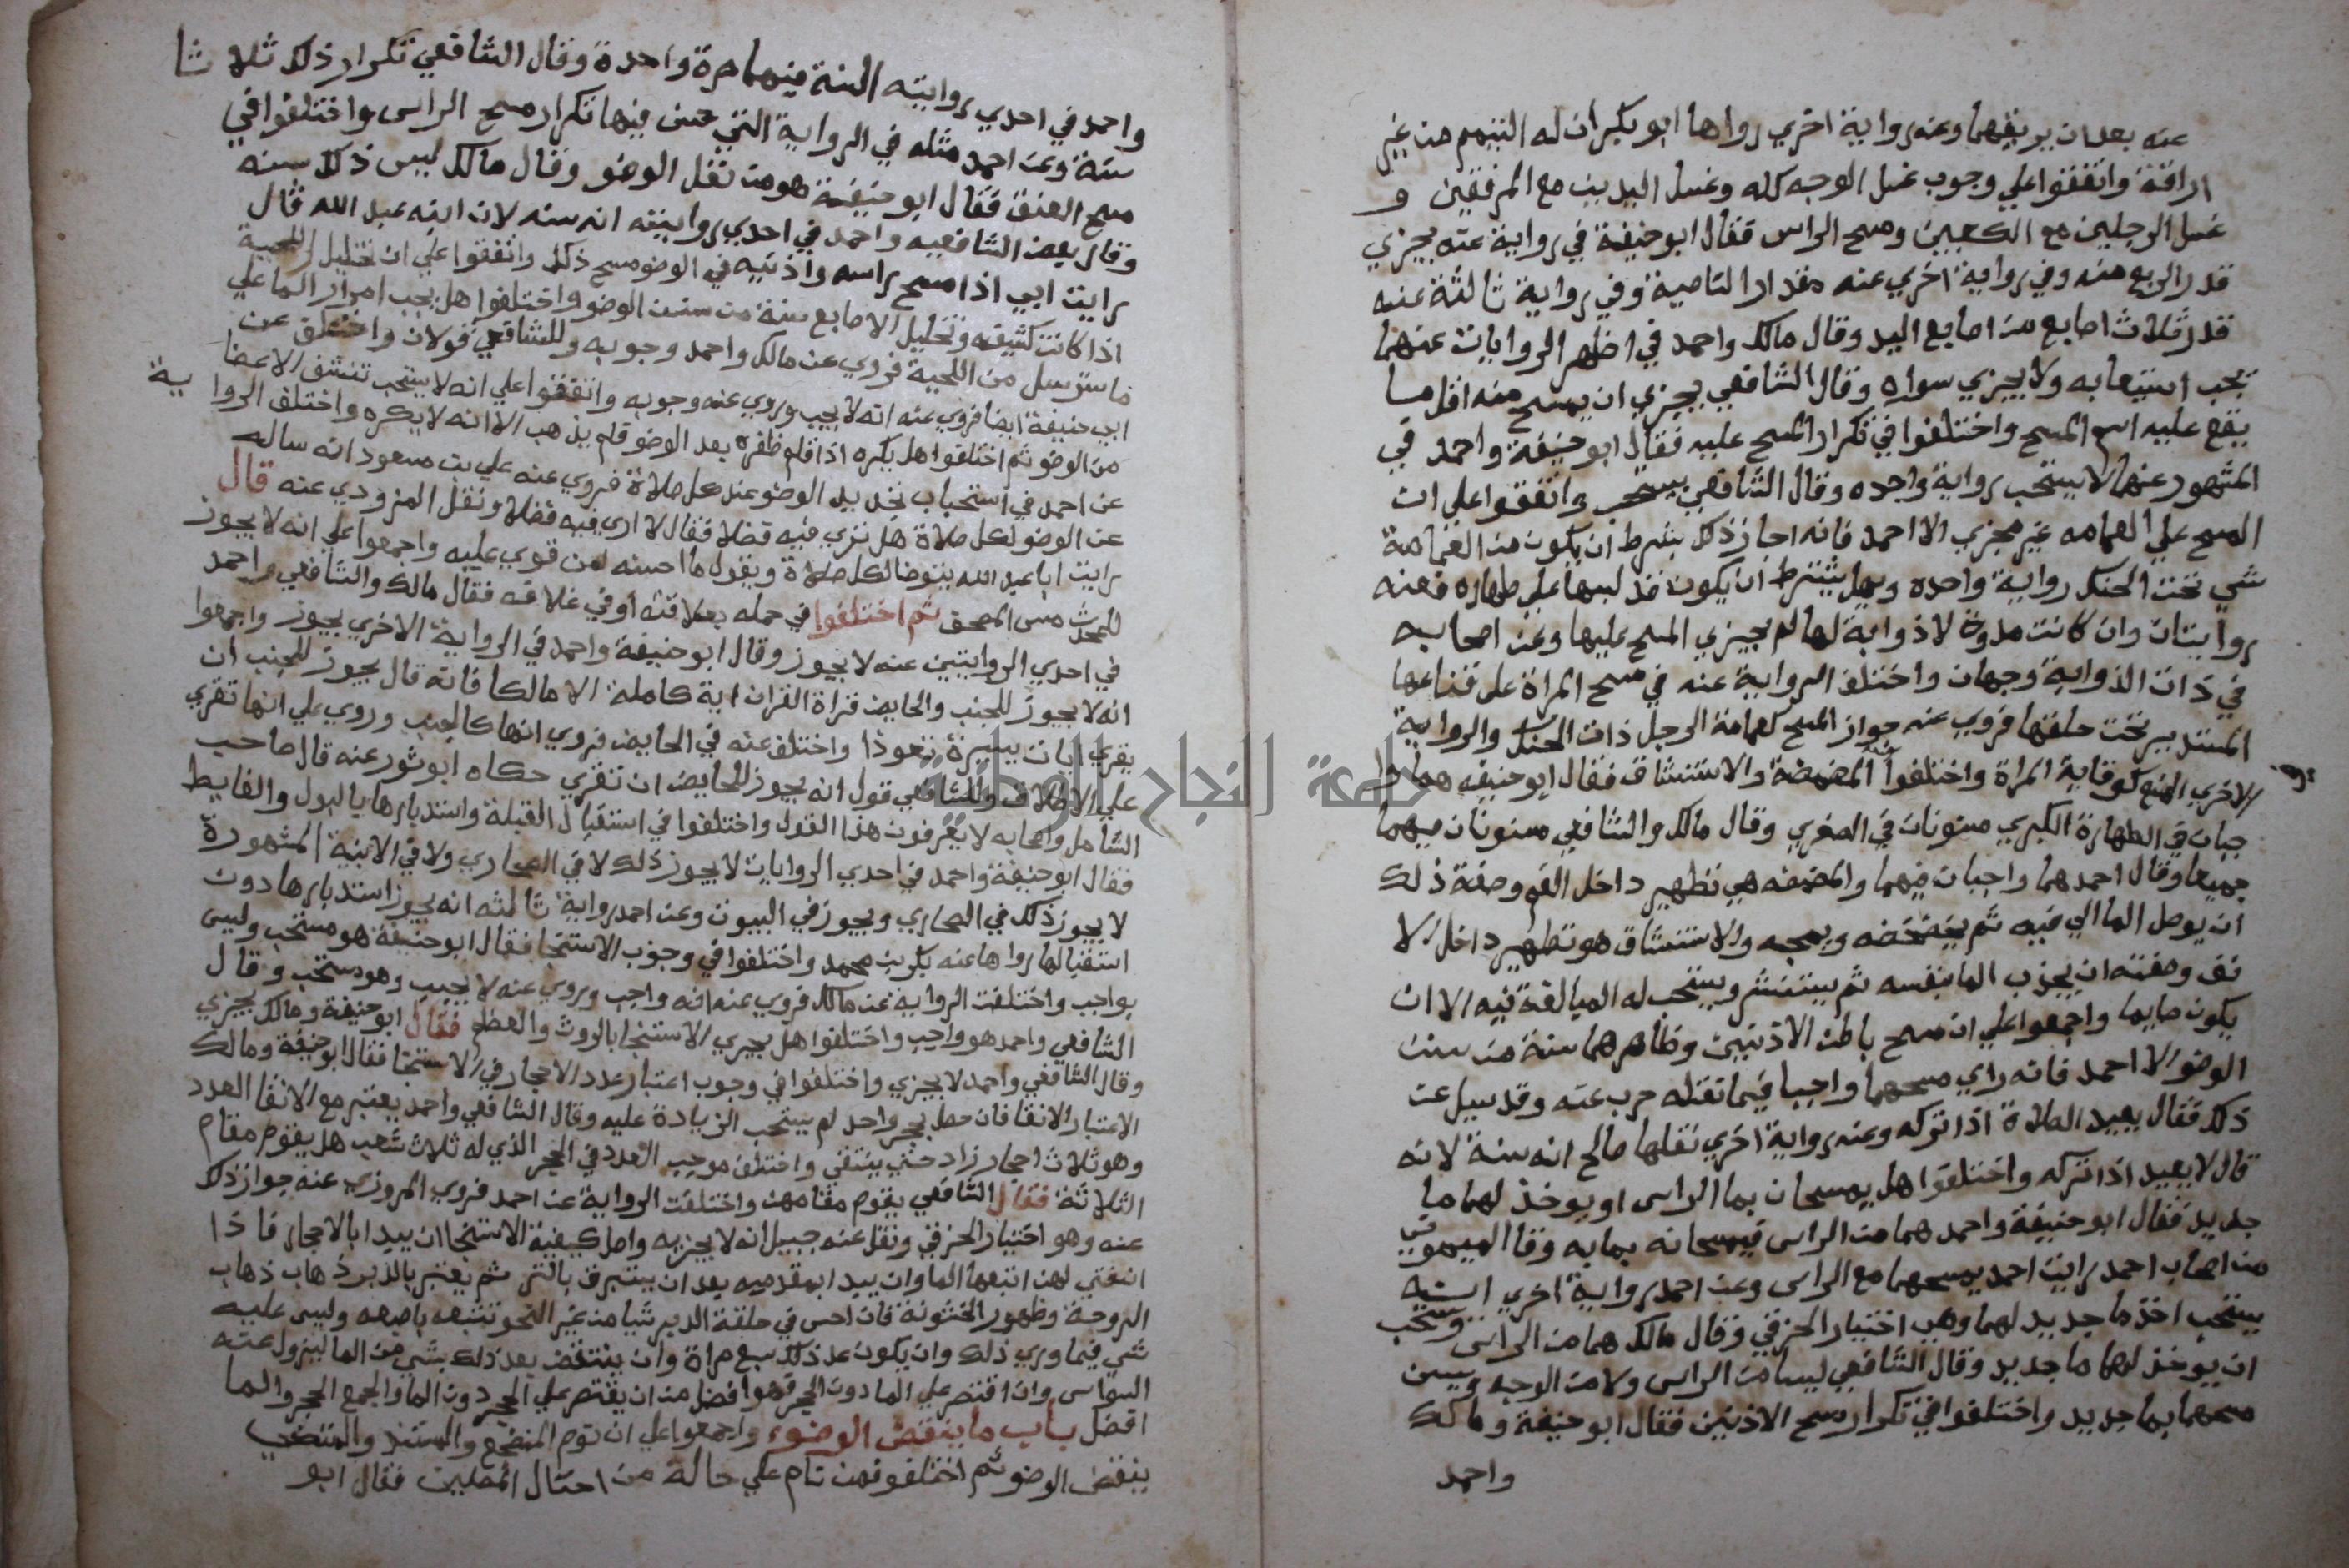 عنه بعد ان يريقهما وعنه رواية اخري رواها ابو بكر ان له التيمم من غير
اراقة واتفقوا علي وجوب غسل الوجه كله وغسل اليدين مع المرفقين و
غسل الرجلين مع الكعبين ومسح الراس فقال ابو حنيفة في رواية عنه يجزي
قدر الربع منه وفي رواية اخري عنه مقدار الناصية وفي رواية ثالثة عنه
قدر ثلاث اصابع من اصابع اليد وقال مالك واحمد في اظهر الروايات عنهما
يجب استيعابه ولا يجزي سواه وقال الشافعي يجزي ان يمسح منه اقل ما
يقع عليه اسم المسح واختلفوا في تكرار المسح عليه فقال ابو حنيفة واحمد في
المشهور عنهما لا يستحب رواية واحده وقال الشافعي يستحب واتفقوا علي ان
المسح علي العمامه غير مجزي الا احمد فانه اجاز ذلك بشرط ان يكون من العمامة
شي تحت الحنك رواية واحده وهل يشترط ان يكون قد لبسها علي طهاره فعنه
روايتان وان كانت مدورة لا ذوابة لها لم يجيزي المسح عليها وعن اصحابه
في ذات الذوابة وجهان واختلف الرواية عنه في مسح المراة على قناعها
المستدير تحت حلقها فروي عنه جواز المسح كعمامة الرجل ذات الحنك والرواية
الاخري المنع كوقاية المراة واختلفوا المضمضة والاستنشاق فقال ابو حنيفه هما وا
جبان في الطهارة الكبري مسنونان في الصغري وقال مالك والشافعي مسنونان فيهما
جميعا وقال احمد هما واجبان فيهما والمضمضه هي تطهير داخل الفم وصفة ذلك
ان يوصل الما الي فيه ثم يخضخضه ويمجه والاستنشاق هو تطهير داخل الا
نف وصفته ان يجذب الما بنفسه ثم يستنثر ويستحب له المبالغة فيه الا ان
يكون صايما واجمعوا علي ان مسح باطن الاذنين وظاهرهما سنة من سنن
الوضو الا احمد فانه راي مسحهما واجبا فيما نقله حرب عنه وقد سيل عن
ذلك فقال يعيد الصلاة اذا تركه وعنه رواية اخري نقلها صالح انه سنة لانه
قال لا يعيد اذا تركه واختلفوا هل يمسحان بما الراس او يوخذ لهما ما
جديد فقال ابو حنيفة واحمد هما من الراس فيمسحانه بمايه وقال الميموني
من اصحاب احمد رايت احمد يمسحهما مع الراس وعن احمد رواية اخري انه
يستحب اخذ ما جديد لهما وهي اختيار الخرقي وقال مالك هما من الراس ويستحب
ان يوخذ لهما ما جديد وقال الشافعي ليسا من الراس ولا من الوجه ويسن
مسحهما بما جديد واختلفوا في تكرار مسح الاذنين فقال ابو حنيفة ومالك
واحمد
واحمد في احدي روايتيه السنة فيهما مرة واحدة وقال الشافعي تكرار ذلك ثلاثا
سنة وعن احمد مثله في الرواية التي فيها تكرار مسح الراس واختلفوا في
مسح العنق فقال ابو حنيفة هو من نفل الوضو وقال مالك ليس ذلك سنه
وقال بعض الشافعيه واحمد في احدي روايتيه انه سنه لان ابنه عبد الله قال
رايت ابي اذا مسح راسه واذنيه في الوضو مسح ذلك واتفقوا علي ان تخليل اللحية
اذا كانت كثيفه وتخليل الاصابع سنة من سنن الوضو واختلفوا هل يجب امرار الما علي
ما استرسل من اللحية فروي عن مالك واحمد وجوبه وللشافعي قولان واختلف عن
ابي حنيفة ايضا فروي عنه انه لا يجب وروي عنه وجوبه واتفقوا علي انه لا يستحب تنشف الاعضا
من الوضو ثم اختلفوا هل يكره اذا قلم ظفره بعد الوضو فلم يذهب الا انه لا يكره واختلف الرواية
عن احمد في استحباب تجديد الوضو عند كل صلاة فروي عنه علي بن سعود انه ساله
عن الوضو لكل صلاة هل تري فيه فضلا فقال لا اري فيه فضلا ونقل المزودي عنه قال
رايت ابا عبد الله يتوضا لكل صلاة ويقول ما احسنه لمن قوي عليه واجمعوا علي انه لا يجوز
للمحدث مس المصحف ثم اختلفوا في حمله بعلاقته او في غلافه فقال مالك والشافعي واحمد
في احدي الروايتين عنه لا يجوز وقال ابو حنيفة واحمد في الرواية الاخري يجوز واجمعوا
انه لا يجوز للجنب والحايض قراة القران اية كاملة الا مالكا فانه قال يجوز للجنب ان
يقري ايات يسيرة تعوذا واختلف عنه في الحايض فروي انها كالجنب وروي علي انها تقري
علي الاطلاق وللشافعي قول انه يجوز للحايض ان تقري حكاه ابو ثور عنه قال صاحب
الشامل واصحابه لا يعرفون هذا القول واختلفوا في استقبال القبلة واستدبارها بالبول والغايط
فقال ابو حنيفة واحمد في احدي الروايات لا يجوز ذلك لا في الصحاري ولا في الابنية المشهورة
لا يجوز ذلك في الصحاري ويجوز في البيوت وعن احمد رواية ثالثه انه يجوز استدبارها دون
استقبالها رواها عنه بكر بن محمد واختلفوا في وجوب الاستنجا فقال ابو حنيفة هو مستحب وليس
بواجب واختلفت الرواية عن مالك فروي عنه انه واجب وروي عنه لا يجب وهو مستحب وقال
الشافعي واحمد هو واجب واختلفوا هل يجزي الاستنجا بالروث والعظم فقال ابو حنيفة ومالك يجزي
وقال الشافعي واحمد لا يجزي واختلفوا في وجوب اعتبار عدد الاحجار في الاستنجا فقال ابو حنيفة ومالك
الاعتبار الانقا فان حصل بحجر واحد لم يستحب الزيادة عليه وقال الشافعي واحمد يعتبر مع الانقا العدد
وهو ثلاث احجار زاد حتي ينتقي واختلف موجب العدد في الحجر الذي له ثلاث شعب هل يقوم مقام
الثلاثة فقال الشافعي يقوم مقامهن واختلفت الرواية عن احمد فروي المروزي عنه جواز ذلك
عنه وهو اختيار الخرقي ونقل عنه حنبل انه لا يجزيه واصل كيفية الاستنجا ان يبدا بالاحجار فاذا
انقي بهن اتبعها الما وان يبدا بمقدمه بعد ان يستبرق ثم يعتبر بالدبر ذهاب
اللزوجة وظهور الخشونة فان احس في حلقة الدبر شيا من غير النجو تتبعه باصبعه وليس عليه
شي فيما وري ذلك وان يكون عد ذلك سبع مراة وان ينتضح بعد ذلك بشي من الما ليزول عنه
الوسواس وان اقتصر علي الما دون الحجر فهو افضل من ان يقتصر علي الحجر دون الما والجمع الحجر والما
افضل باب ما ينقض الوضوء واجمعوا علي ان نوم المضجع والمستند والمتكي
ينقض الوضو ثم اختلفو فمن نام علي حالة من احتال المصلين فقال ابو
جامعة النجاح الوطنية